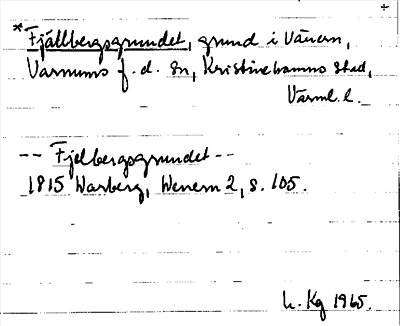 +
*Fjällbergsgrundet, grund i Vänern,
Varnums f. d. sn, Kristinehamns stad,
Värml. l.
-- Fjelbergsgrundet --
1815 Warberg, Wenern 2, s. 105.
L. Kg 1965.